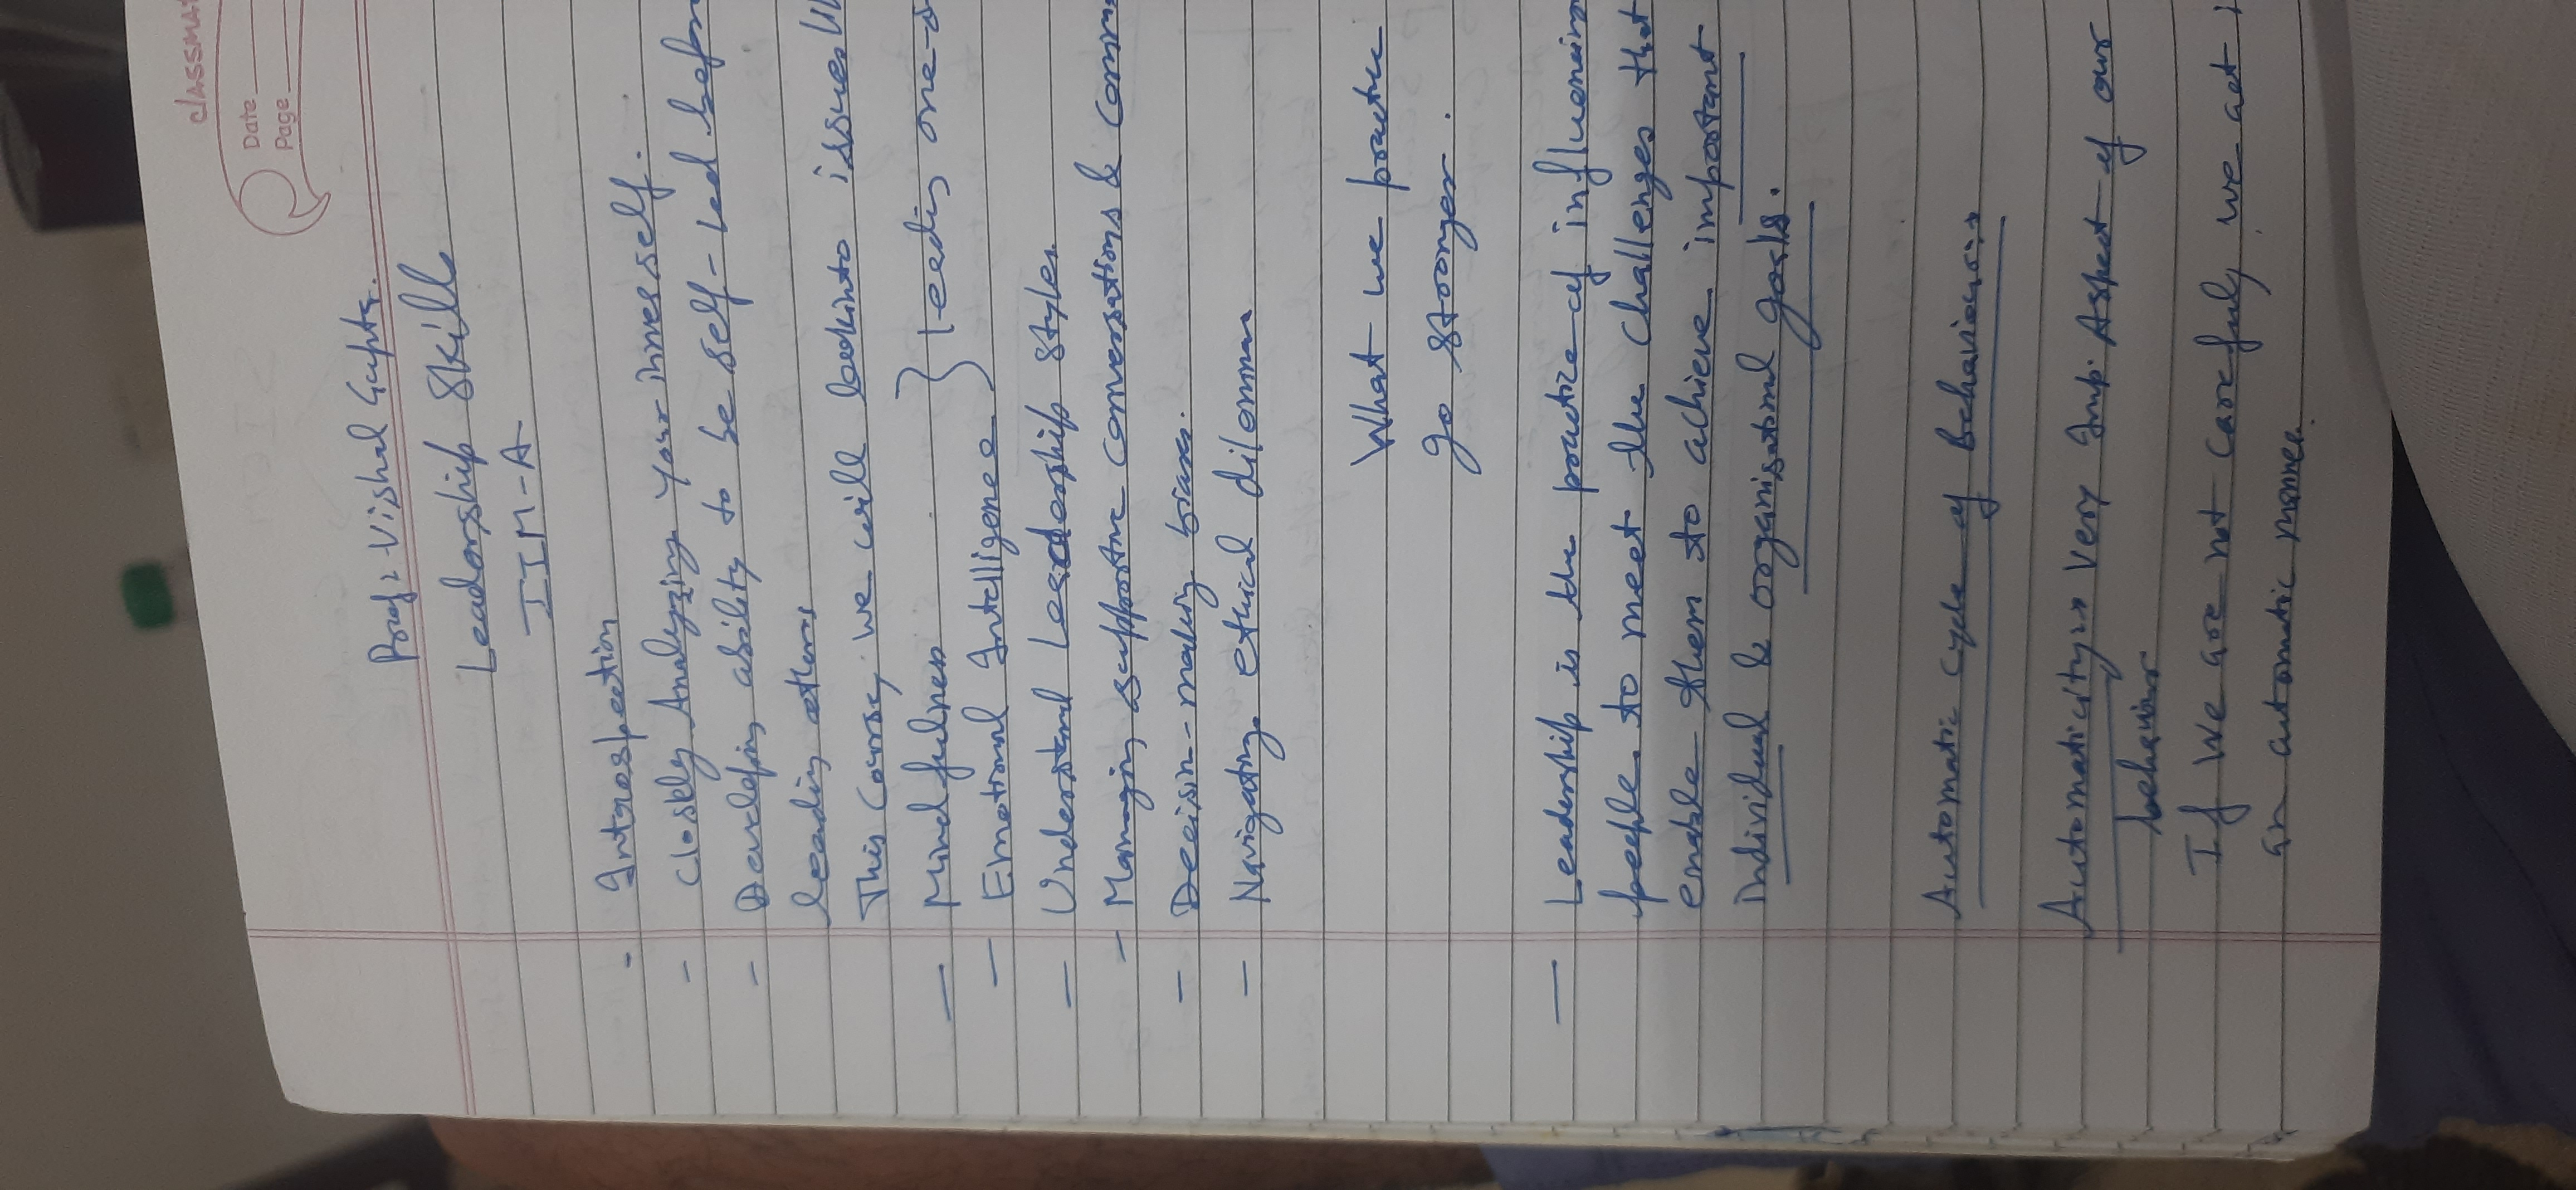 classmat
Date
Page
Prof: Vishal Gupta.
Leadership Skills
IIM-A
- Introspection
- Closely Analyzing your inner self.
- Developing ability to be self-led befor
leading others
This Course, we will look into issues li
- Mindfulness
- Emotional Intelligence } leading one-s
- Understand Leadership Styles
- Managing & supportive conversations & comm
- Decision-making biases.
- Navigating ethical dilemma
What we practice
go stronger.
- Leadership is the practice of influencing
people to meet the challenges that
enable them to achieve important
individual & organisational goals.
Automatic cycle of Behaviour:→
Automaticity:→ Very Imp. Aspect of our
behaviour
If we are not carefuly, we act i
an automatic manner.